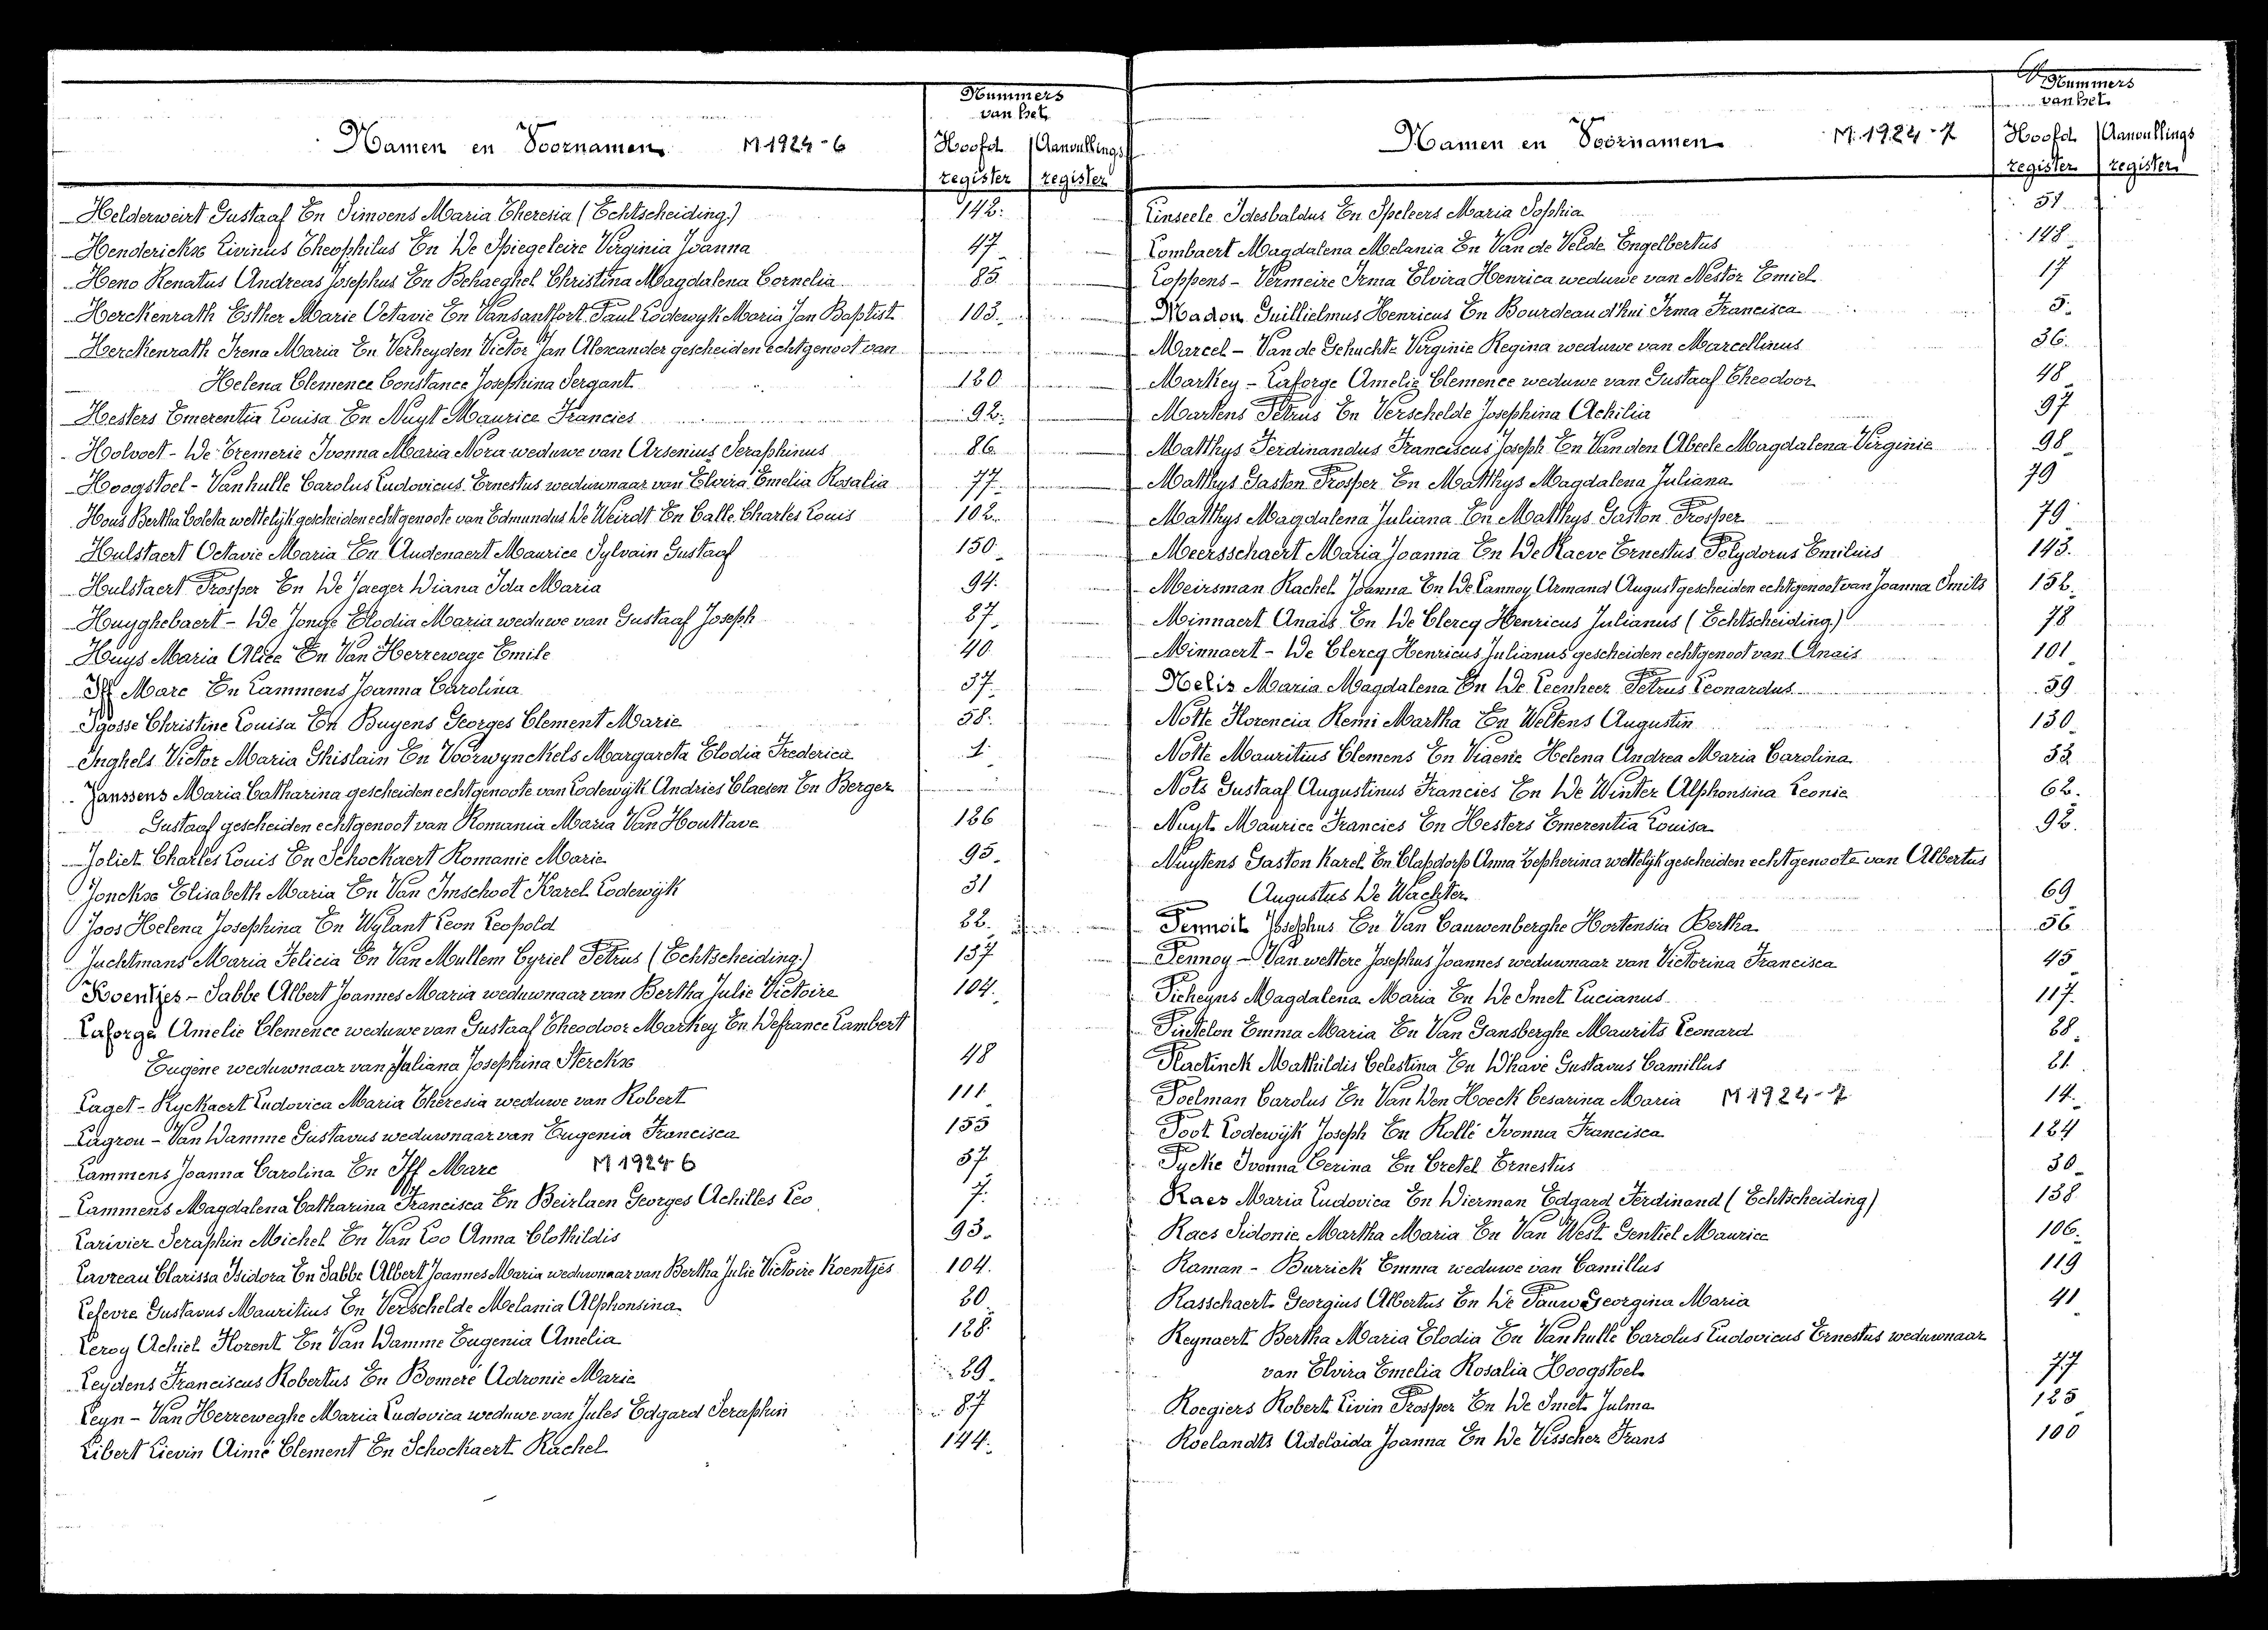 Nummers
van het
Namen en Voornamen M 1924-6 Hoofd Aanvullings
register register
Helderweirt Gustaaf En Simoens Maria Theresia (Echtscheiding) 142.
Henderickx Livinus Theophilus En De Spiegeleire Virginia Joanna 47
Heno Renatus Andreas Josephus En Behaeghel Christina Magdalena Cornelia 83
Herckenrath Esther Marie Octavie En Vansantfort Paul Lodewyk Maria Jan Baptist 103.
Herckenrath Irena Maria En Verheyden Victor Jan Alexander gescheiden echtgenoot van
Helena Clemence Constance Josephina Sergant 120
Hesters Emerentia Louisa En Nuyt Maurice Francies 92.
Holvoet - De Cremerie Ivonna Maria Nora weduwe van Arsenius Seraphinus 86
Hoogstoel - Vanhulle Carolus Ludovicus Ernestus weduwnaar van Elvira Emelia Rosalia 77
Hous Bertha Coleta wettelijk gescheiden echtgenoote van Edmundus De Weirdt En Calle Charles Louis 102.
Hulstaert Octavie Maria En Audenaert Maurice Sylvain Gustaaf 150
Hulstaert Prosper En De Jaeger Diana Ida Maria 94.
Huyghebaert - De Jonge Elodia Maria weduwe van Gustaaf Joseph 27
Huys Maria Alice En Van Herrewege Emile 40
Iff Marc En Lammens Joanna Carolina 37
Igosse Christine Louisa En Buyens Georges Clement Marie 58.
Inghels Victor Maria Ghislain En Voorwynckels Margareta Elodia Frederica 1
Janssens Maria Catharina gescheiden echtgenoote van Lodewijk Andries Claesen En Berger
Gustaaf gescheiden echtgenoot van Romania Maria Van Houttave 126
Joliet Charles Louis En Schockaert Romanie Marie 95.
Jonckx Elisabeth Maria En Van Imschoot Karel Lodewijk 31
Joos Helena Josephina En Wylant Leon Leopold 22.
Juchtmans Maria Felicia En Van Mullem Cyriel Petrus (Echtscheiding) 137
Koentjes - Sabbe Albert Joannes Maria weduwnaar van Bertha Julie Victoire 104.
Laforge Amelie Clemence weduwe van Gustaaf Theodoor Markey En Defrance Lambert
Eugène weduwnaar van Juliana Josephina Sterckx 48
Laget - Ryckaert Ludovica Maria Theresia weduwe van Robert 111
Lagrou - Van Damme Gustavus weduwnaar van Eugenia Francisca 155
Lammens Joanna Carolina En Iff Marc M 1924 6 37
Lammens Magdalena Catharina Francisca En Beirlaen Georges Achilles Leo 7.
Larivier Seraphin Michel En Van Loo Anna Clothildis 93.
Lavreau Clarissa Isidora En Sabbe Albert Joannes Maria weduwnaar van Bertha Julie Victoire Koentjes 104.
Lefevre Gustavus Mauritius En Verschelde Melania Alphonsina 20
Leroy Achiel Florent En Van Damme Eugenia Amelia 128.
Leydens Franciscus Robertus En Bomere Adronie Marie 29.
Leyn - Van Herreweghe Maria Ludovica weduwe van Jules Edgard Seraphin 87
Libert Lievin Aimé Clement En Schockaert Rachel 144.
Nummers
van het
Namen en Voornamen M. 1924-7 Hoofd Aanvullings
register register
Linseele Idesbaldus En Speleers Maria Sophia 51
Lombaert Magdalena Melania En Van de Velde Engelbertus 148
Loppens - Vermeire Irma Elvira Henrica weduwe van Nestor Emiel 17
Madou Guillielmus Henricus En Bourdeaud'hui Irma Francisca 5.
Marcel - Van de Gehuchte Virginie Regina weduwe van Marcellinus 36.
Markey - Laforge Amelie Clemence weduwe van Gustaaf Theodoor 48
Martens Petrus En Verschelde Josephina Achilia 97
Matthys Ferdinandus Franciscus Joseph En Van den Abeele Magdalena Virginie 98
Matthys Gaston Prosper En Matthys Magdalena Juliana 79
Matthys Magdalena Juliana En Matthys Gaston Prosper 79
Meersschaert Maria Joanna En De Raeve Ernestus Polydorus Emilius 143.
Meirsman Rachel Joanna En De Lannoy Armand August gescheiden echtgenoot van Joanna Smits 152
Minnaert Anais En De Clercq Henricus Julianus (Echtscheiding) 78
Minnaert - De Clercq Henricus Julianus gescheiden echtgenoot van Anais 101
Nelis Maria Magdalena En De Leenheer Petrus Leonardus 59
Notte Florencia Remi Martha En Weltens Augustin 130
Notte Mauritius Clemens En Viaene Helena Andrea Maria Carolina 33
Nots Gustaaf Augustinus Francies En De Winter Alphonsina Leonie 62.
Nuyt Maurice Francies En Hesters Emerentia Louisa 92.
Nuytens Gaston Karel En Clapdorp Anna Zepherina wettelijk gescheiden echtgenoote van Albertus
Augustus De Wachter 69
Pennoit Josephus En Van Cauwenberghe Hortensia Bertha 56
Pennoy - Van wettere Josephus Joannes weduwnaar van Victorina Francisca 45
Picheyns Magdalena Maria En De Smet Lucianus 117.
Pintelon Emma Maria En Van Gansberghe Maurits Leonard 28
Plactinck Mathildis Celestina En Dhave Gustavus Camillus 21
Poelman Carolus En Van Den Hoeck Cesarina Maria M 1924-7 14.
Poot Lodewijk Joseph En Rollé Ivonna Francisca 124
Pycke Ivonna Cerina En Cretel Ernestus 30
Raes Maria Ludovica En Dierman Edgard Ferdinand (Echtscheiding) 138
Raes Sidonie Martha Maria En Van West Gentiel Maurice 106.
Raman - Burrick Emma weduwe van Camillus 119
Rasschaert Georgius Albertus En De Pauw Georgina Maria 41
Reynaert Bertha Maria Elodia En Vanhulle Carolus Ludovicus Ernestus weduwnaar
van Elvira Emelia Rosalia Hoogstoel 77
Roegiers Robert Livin Prosper En De Smet Julma 125
Roelandts Adelaida Joanna En De Visscher Frans 100